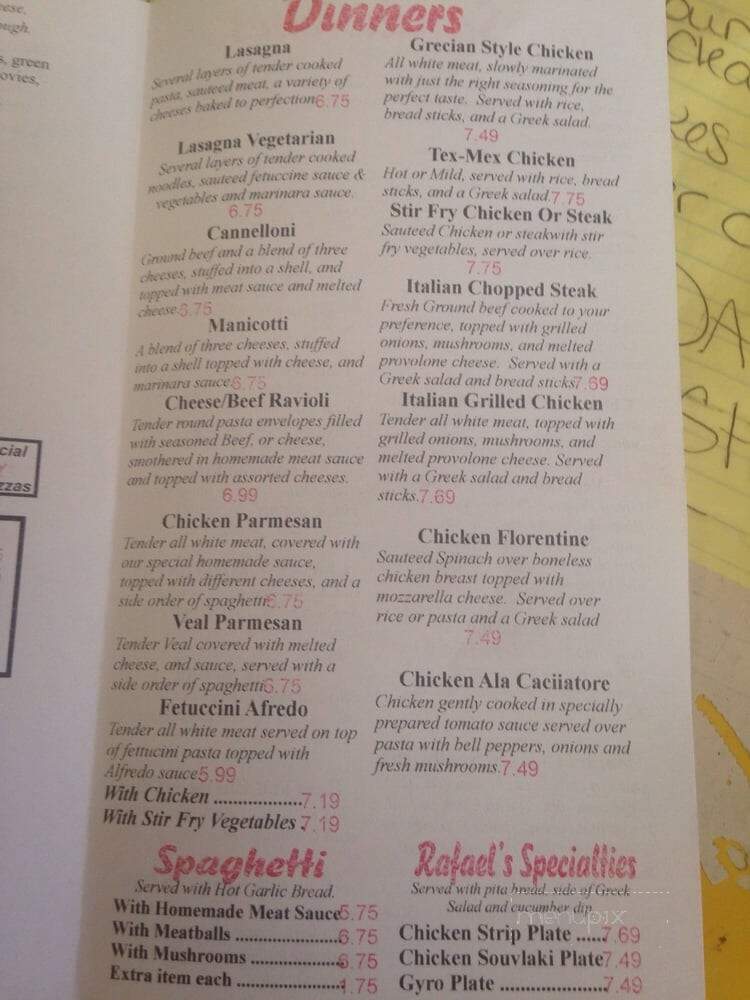 ese,
ough.
s, green
ovies,
cial
zzas
Dinners
Lasagna
Several layers of tender cooked
pasta, sauteed meat, a variety of
cheeses baked to perfection 6.75
Lasagna Vegetarian
Several layers of tender cooked
noodles, sauteed fetuccine sauce &
vegetables and marinara sauce.
6.75
Cannelloni
Ground beef and a blend of three
cheeses, stuffed into a shell, and
topped with meat sauce and melted
cheese. 6.75
Manicotti
A blend of three cheeses, stuffed
into a shell topped with cheese, and
marinara sauce 6.75
Cheese/Beef Ravioli
Tender round pasta envelopes filled
with seasoned Beef, or cheese,
smothered in homemade meat sauce
and topped with assorted cheeses.
6.99
Chicken Parmesan
Tender all white meat, covered with
our special homemade sauce,
topped with different cheeses, and a
side order of spaghetti 6.75
Veal Parmesan
Tender Veal covered with melted
cheese, and sauce, served with a
side order of spaghetti 6.75
Fetuccini Afredo
Tender all white meat served on top
of fettucini pasta topped with
Alfredo sauce 5.99
With Chicken ..................7.19
With Stir Fry Vegetables . 7.19
Spaghetti
Served with Hot Garlic Bread.
With Homemade Meat Sauce 5.75
With Meatballs ......................6.75
With Mushrooms ...................6.75
Extra item each ......................1.75
Grecian Style Chicken
All white meat, slowly marinated
with just the right seasoning for the
perfect taste. Served with rice,
bread sticks, and a Greek salad.
7.49
Tex-Mex Chicken
Hot or Mild, served with rice, bread
sticks, and a Greek salad. 7.75
Stir Fry Chicken Or Steak
Sauteed Chicken or steakwith stir
fry vegetables, served over rice.
7.75
Italian Chopped Steak
Fresh Ground beef cooked to your
preference, topped with grilled
onions, mushrooms, and melted
provolone cheese. Served with a
Greek salad and bread sticks 7.69
Italian Grilled Chicken
Tender all white meat, topped with
grilled onions, mushrooms, and
melted provolone cheese. Served
with a Greek salad and bread
sticks. 7.69
Chicken Florentine
Sauteed Spinach over boneless
chicken breast topped with
mozzarella cheese. Served over
rice or pasta and a Greek salad
7.49
Chicken Ala Caciiatore
Chicken gently cooked in specially
prepared tomato sauce served over
pasta with bell peppers, onions and
fresh mushrooms. 7.49
Rafael's Specialties
Served with pita bread, side of Greek
Salad and cucumber dip
menupix
Chicken Strip Plate ......7.69
Chicken Souvlaki Plate 7.49
Gyro Plate ......................7.49